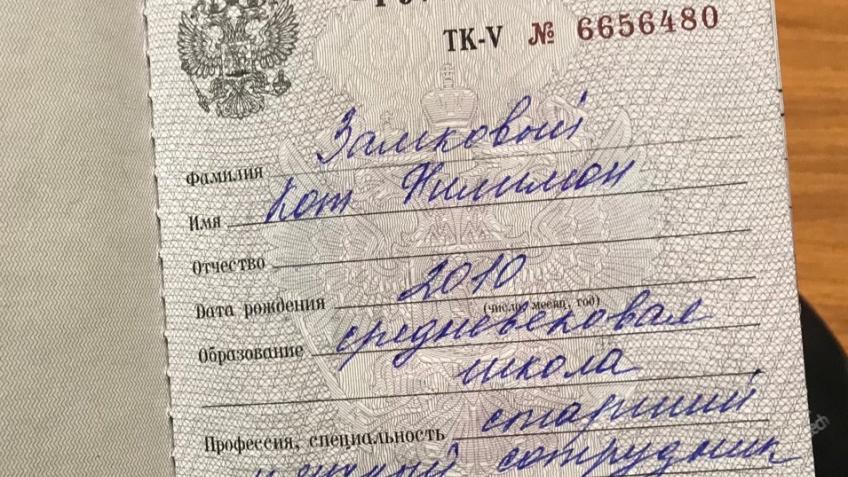 ТК-V № 6656480
Фамилия Замковый
Имя Кот Филимон
Отчество
Дата рождения 2010
(число, месяц, год)
Образование средневековая
школа
Профессия, специальность старший
научный сотрудник